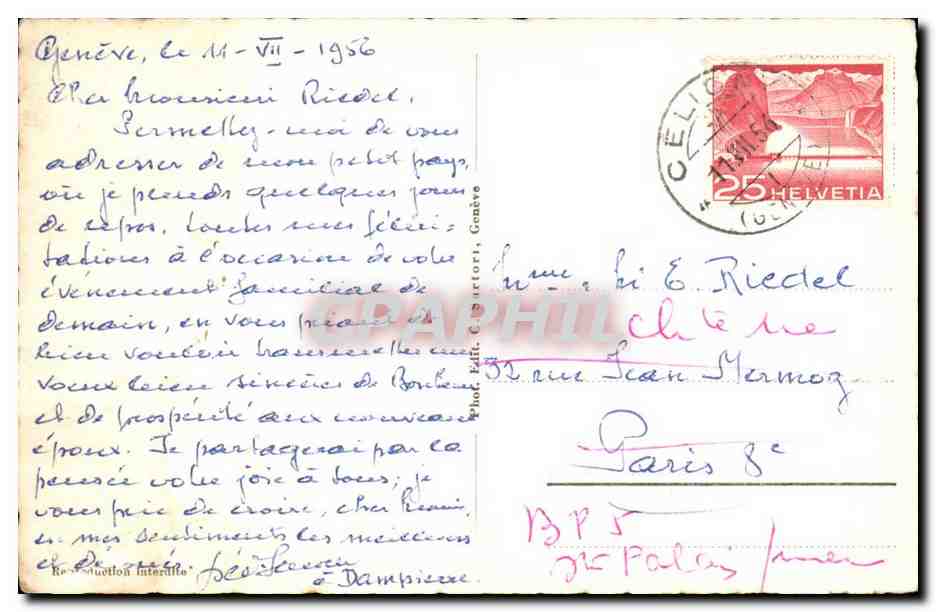 Genève, le 11-VII-1956
Cher Monsieur Riedel,
Permettez-moi de vous
adresser de mon petit pays,
où je prends quelques jours
de repos, toutes mes félici-
tations à l'occasion de votre
évènement familial de
demain, en vous priant de
bien vouloir transmettre mes
voeux bien sincères de Bonheur
et de prospérité aux nouveaux
époux. Je partagerai par la
pensée votre joie à tous; je
vous prie de croire, cher Monsieur,
en mes sentiments les meilleurs
et dévoués
à Dampierre.
Reproduction interdite
Phot. Edit. C. Sartori, Genève
CPAPHIL
25 HELVETIA
CELIGNY
(GENEVE)
E. Riedel
32 rue Jean Mermoz
Paris 8e
BP 5